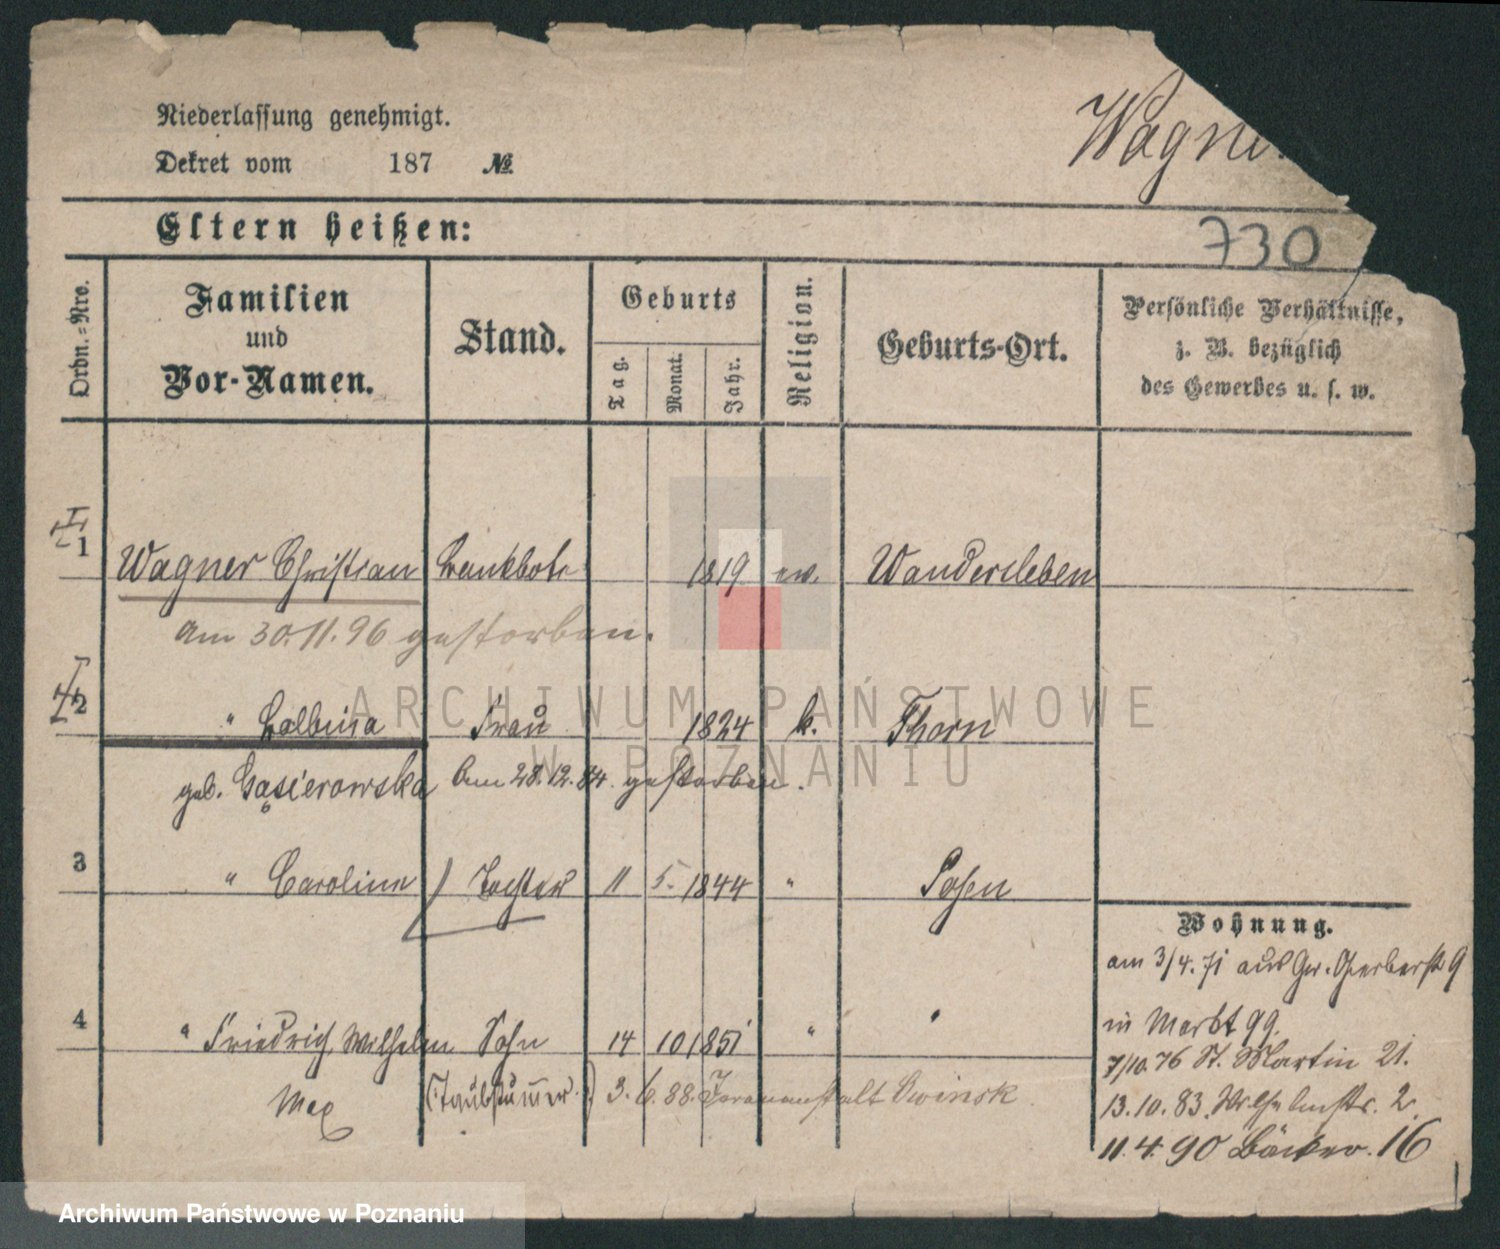 Niederlassung genehmigt.
Dekret vom 187 №
Wagne
Eltern heißen:
730
Ordn.-Nro.
Familien
und
Vor-Namen.
Stand.
Geburts
Tag.
Monat.
Jahr.
Religion.
Geburts-Ort.
Persönliche Verhältnisse,
z. B. bezüglich
des Gewerbes u. s. w.
1 Wagner Christian Bankbote 1819 ev. Wandersleben
am 30.11.96 gestorben.
2 " Balbina Frau 1824 k. Thorn
geb. Gąsierowska am 28.12.84. gestorben.
3 " Caroline Tochter 11 5. 1844 " Posen
Wohnung.
am 3/4. 71 aus Gr. Gerberstr 9
4 " Friedrich Wilhelm Sohn 14 10 1851 " "
in Markt 99.
7/10. 76 St. Martin 21.
Max (Taubstummer.) 3. 6. 88. Irrenanstalt Owinsk
13. 10. 83. Wilhelmstr. 2.
11. 4. 90 Bäcker. 16
ARCHIWUM PAŃSTWOWE
W POZNANIU
Archiwum Państwowe w Poznaniu